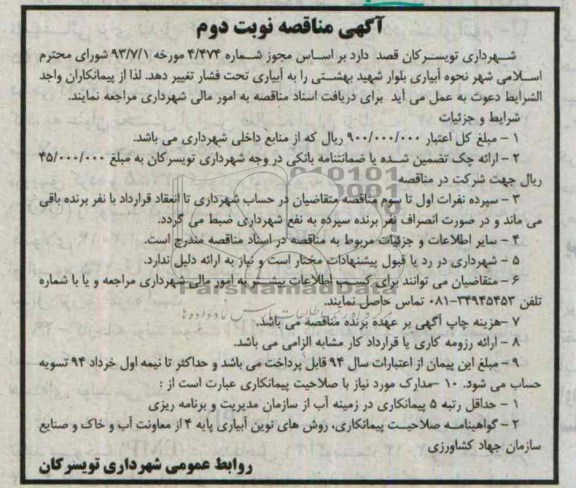 آگهی مناقصه نوبت دوم
شهرداری تویسرکان قصد دارد بر اساس مجوز شماره ۴/۴۷۴ مورخه ۹۳/۷/۱ شورای محترم
اسلامی شهر نحوه آبیاری بلوار شهید بهشتی را به آبیاری تحت فشار تغییر دهد. لذا از پیمانکاران واجد
الشرایط دعوت به عمل می آید برای دریافت اسناد مناقصه به امور مالی شهرداری مراجعه نمایند.
شرایط و جزئیات
۱ – مبلغ کل اعتبار ۹۰۰/۰۰۰/۰۰۰ ریال که از منابع داخلی شهرداری می باشد.
۲ – ارائه چک تضمین شده یا ضمانتنامه بانکی در وجه شهرداری تویسرکان به مبلغ ۴۵/۰۰۰/۰۰۰
ریال جهت شرکت در مناقصه
۳ – سپرده نفرات اول تا سوم مناقصه متقاضیان در حساب شهرداری تا انعقاد قرارداد با نفر برنده باقی
می ماند و در صورت انصراف نفر برنده سپرده به نفع شهرداری ضبط می گردد.
۴ – سایر اطلاعات و جزئیات مربوط به مناقصه در اسناد مناقصه مندرج است.
۵ – شهرداری در رد یا قبول پیشنهادات مختار است و نیاز به ارائه دلیل ندارد.
۶ – متقاضیان می توانند برای کسب اطلاعات بیشتر به امور مالی شهرداری مراجعه و یا با شماره
تلفن ۳۴۹۴۵۴۵۳-۰۸۱ تماس حاصل نمایند.
ParsNamadData
۷ –هزینه چاپ آگهی بر عهده برنده مناقصه می باشد.
۸ – ارائه رزومه کاری یا قرارداد کار مشابه الزامی می باشد.
۹ – مبلغ این پیمان از اعتبارات سال ۹۴ قابل پرداخت می باشد و حداکثر تا نیمه اول خرداد ۹۴ تسویه
حساب می شود. ۱۰ –مدارک مورد نیاز با صلاحیت پیمانکاری عبارت است از :
۱ – حداقل رتبه ۵ پیمانکاری در زمینه آب از سازمان مدیریت و برنامه ریزی
۲ – گواهینامه صلاحیت پیمانکاری، روش های نوین آبیاری پایه ۴ از معاونت آب و خاک و صنایع
سازمان جهاد کشاورزی
روابط عمومی شهرداری تویسرکان